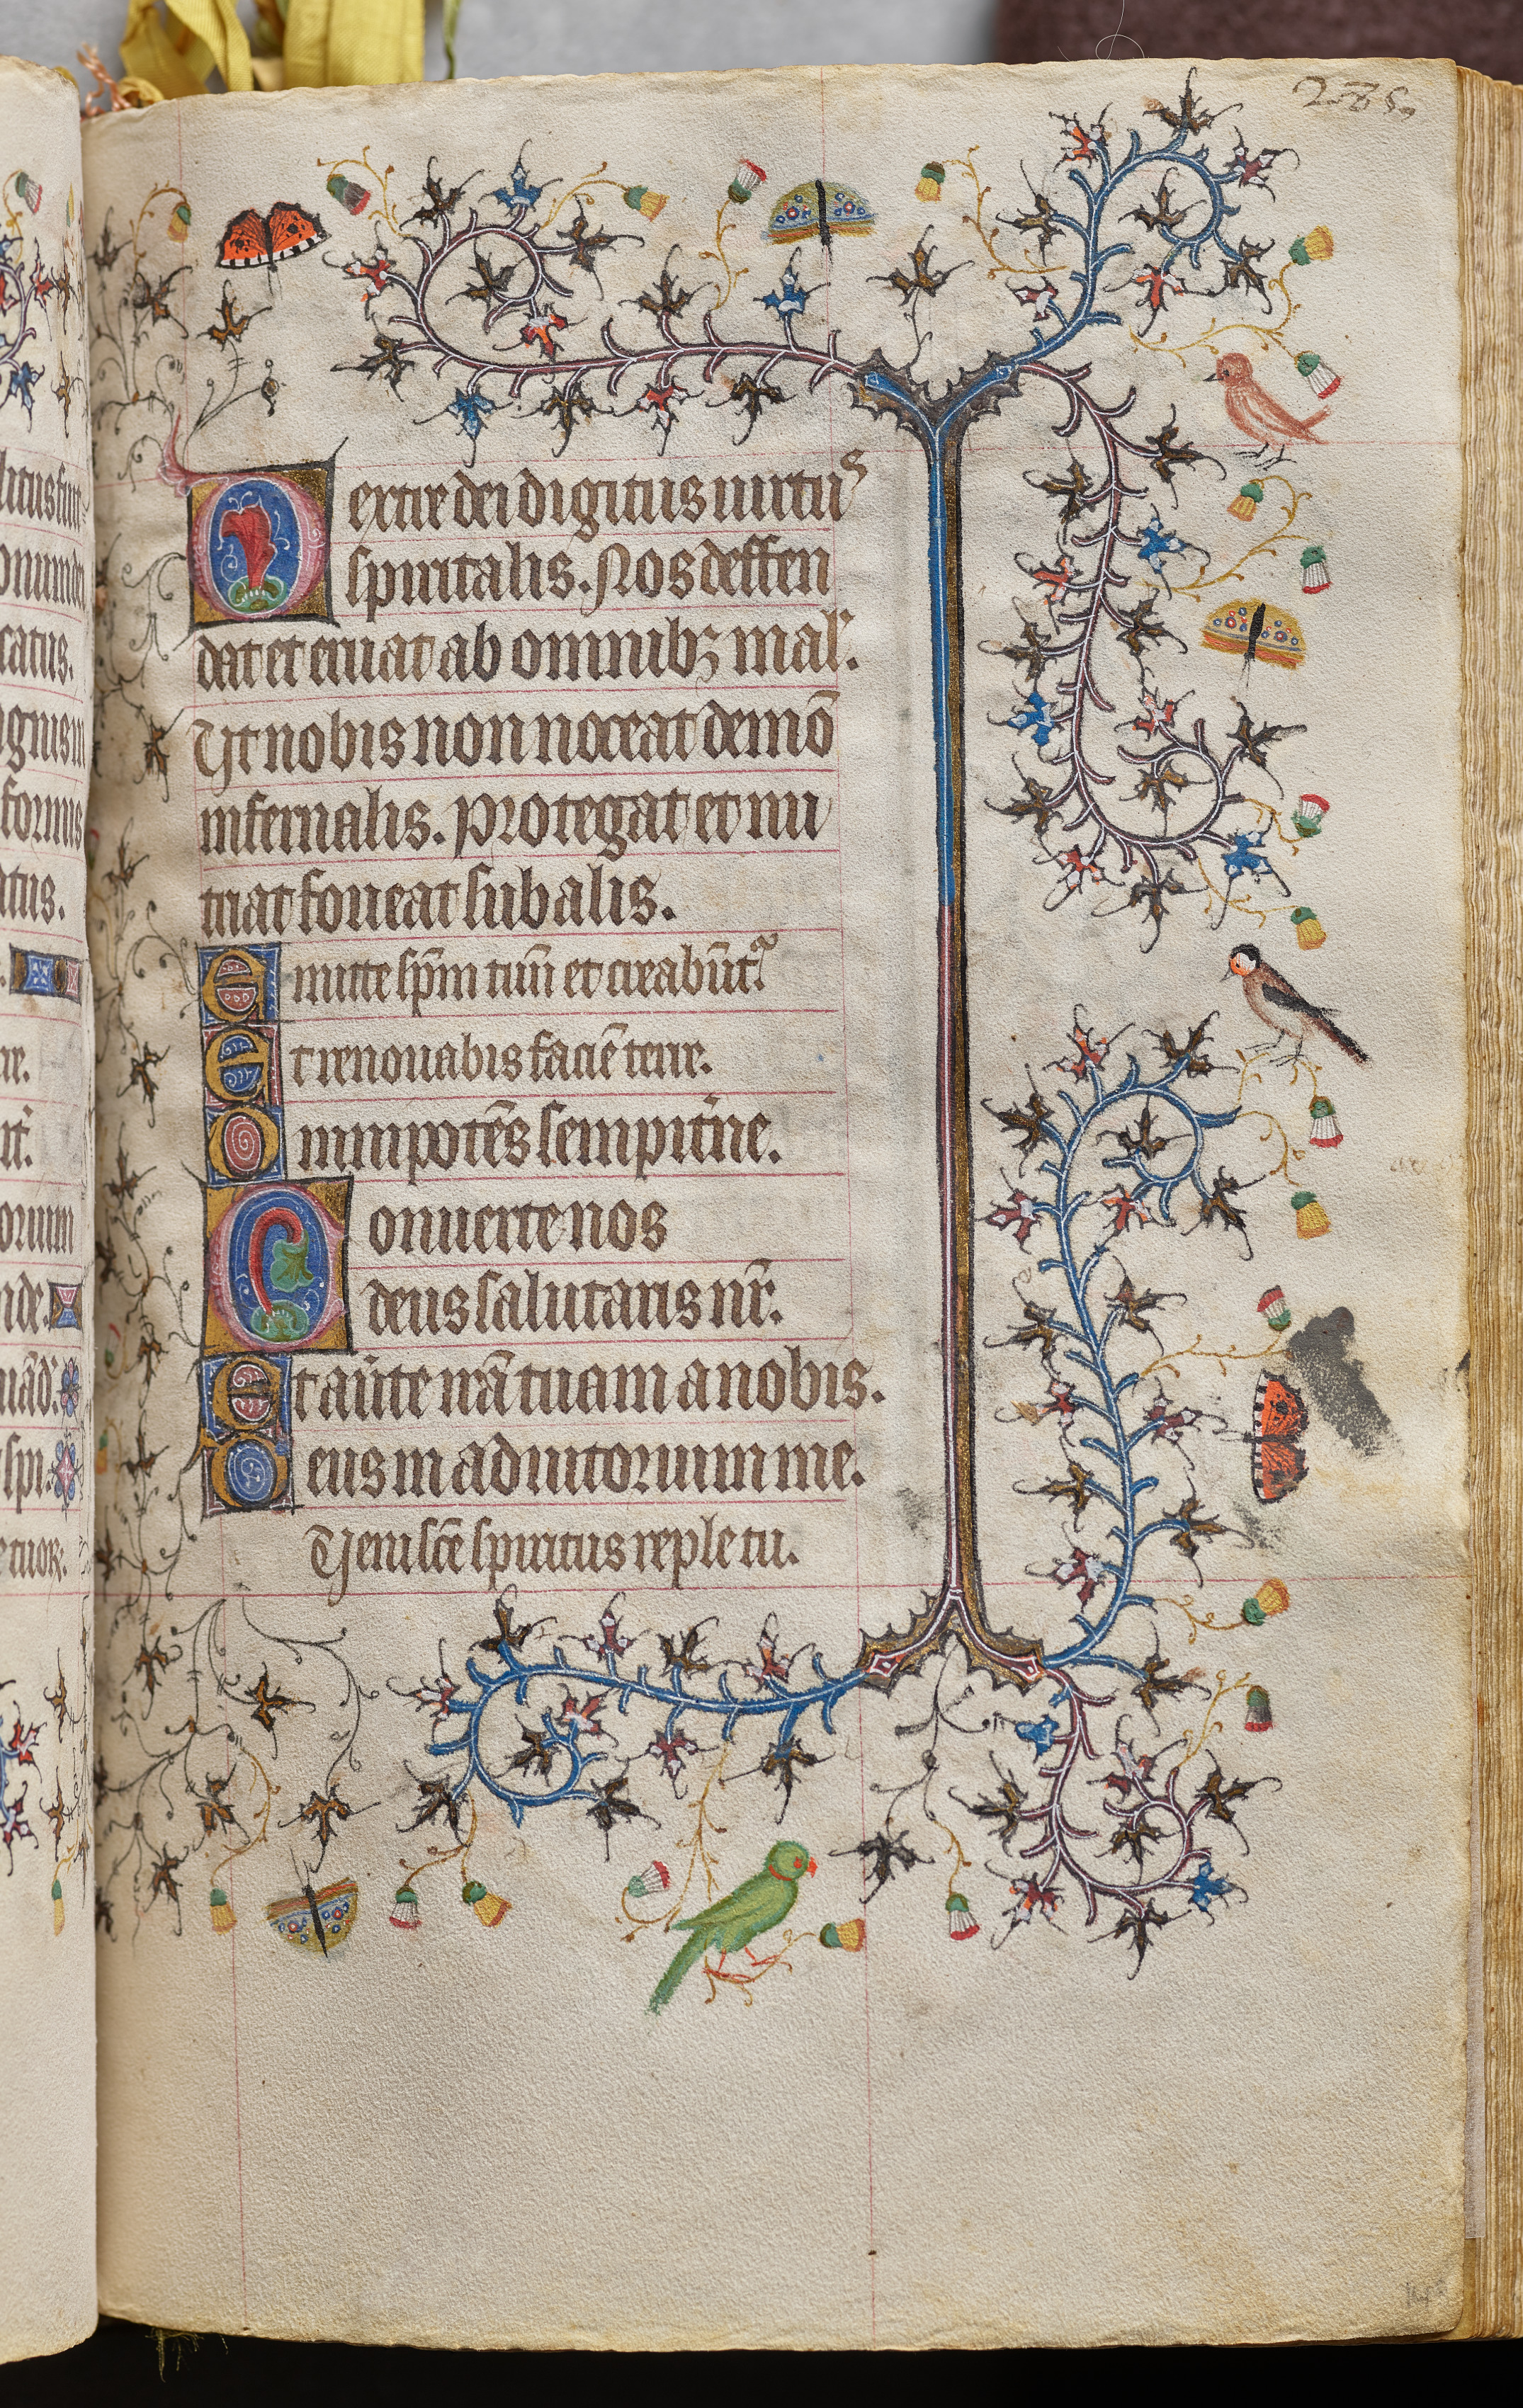 285
Dextre dei digitus uirtus
spiritalis. Nos deffen
dat et eruat ab omnibꝫ mal'.
Ut nobis non noceat demō
infernalis. Protegat et nu
triat foueat sub alis.
Emitte sp̄m tuū et creabūt᷑
Et renouabis faciē terre.
Omnipotēs sempit̄ne.
Conuerte nos
deus salutaris nr̄.
Et au̅te irā tuam a nobis.
Deus in adiutorium me.
Ueni sc̄e spiritus reple tu.
litus fuit
catus.
formis
atus.
re.
orium
nde.
spi.